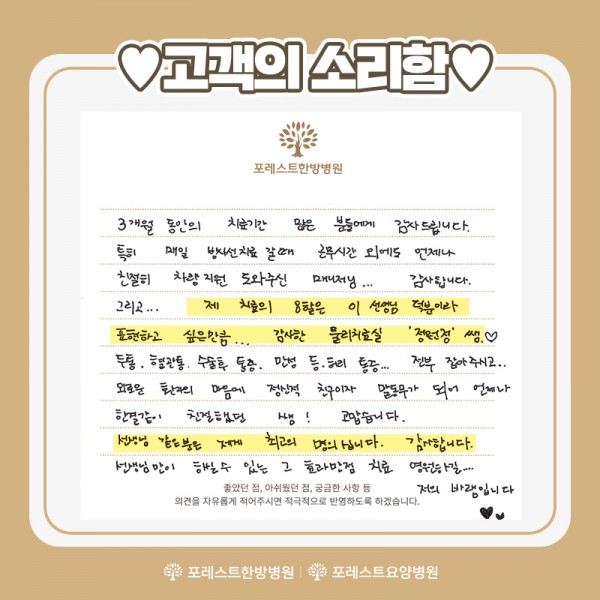 ♥고객의 소리함♥
포레스트한방병원
3개월 동안의 치료기간 많은 분들에게 감사드립니다.
특히 매일 방사선치료 갈때 근무시간 외에도 언제나
친절히 차량지원 도와주신 매니저님... 감사합니다.
그리고... 제 치료의 8할은 이 선생님 덕분이라
표현하고 싶은만큼... 감사한 물리치료실 '정원경' 쌤.♡
두통, 혈관통, 수술후 통증, 만성 등.허리 통증... 전부 잡아주시고..
외로운 환자의 마음에 정신적 친구이자 말동무가 되어 언제나
한결같이 친절했던 쌤! 고맙습니다.
선생님 같은분은 제게 최고의 명의십니다. 감사합니다.
선생님만이 하실수 있는 그 효과만점 치료 영원하길....
저의 바램입니다
♥♥
좋았던 점, 아쉬웠던 점, 궁금한 사항 등
의견을 자유롭게 적어주시면 적극적으로 반영하도록 하겠습니다.
포레스트한방병원 | 포레스트요양병원